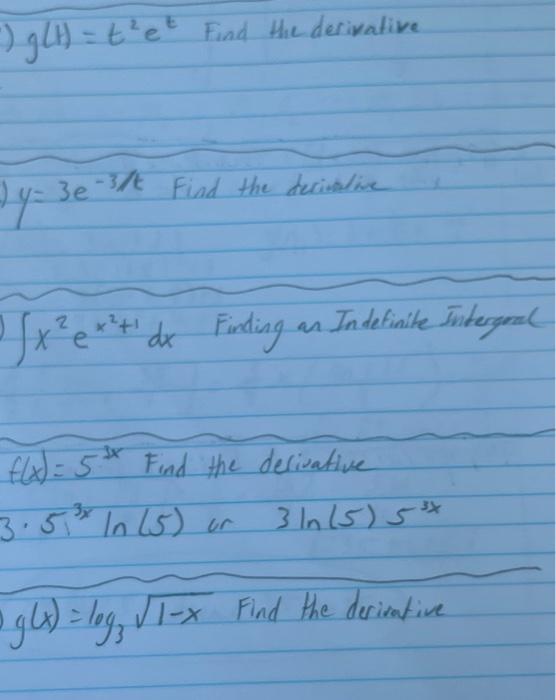 ) g(t) = t²e^t Find the derivative
) y = 3e^-3/t Find the derivative
) ∫x² e^x²+1 dx Finding an Indefinite Intergral
f(x) = 5^3x Find the derivative
3 · 5^3x ln(5) or 3 ln(5) 5^3x
) g(x) = log₃ √1-x Find the derivative